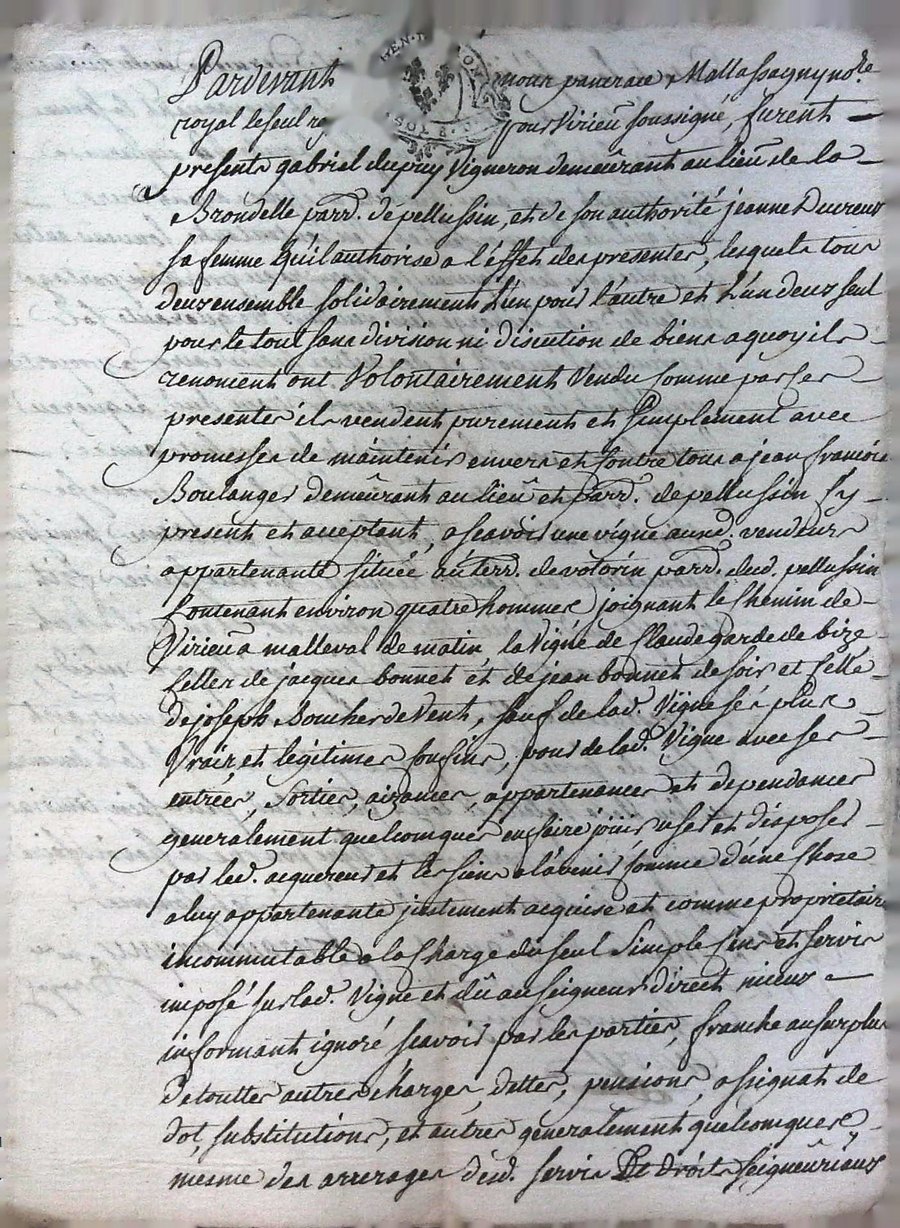 Pardevant
royal le seul pour Virieu soussigné, furent
presents gabriel dupuy Vigneron demeûrant au lieû de la
Brondelle parr. de pellussin, et de son authorité jeanne
sa femme qu'il authorise a l'éffet des presentes, lesquels tous
deux ensemble solidairement L'un pour l'autre et L'un deux seul
pour le tout sans division ni discution de biens a quoy ils
renoncent ont Volontairement Vendu comme par ses
presentes ils vendent purement et simplement avec
promesses de máintenir envers et contre tous a jean francois
Boulanger demeûrant au lieû et parr. de pellussin cy
present et acceptant, a scavoir une vigne aux d. vendeurs
appartenante sitüée au terr. de votorin parr. dud. pellussin
Contenant environ quatre hommes joignant le Chemin de
Virieu a malleval de matin la Vigne de Claude garde de bize
Celles de jacques bonnet et de jean bonnet de soir et Celle
de joseph Boucher de Vent, sauf de lad. Vigne sés plus
Vrais et legitimes Confins, pour de lad. Vigne avec ses
entrées, Sorties, aizances, appartenances et dependances
generalement quelcomques en faire joüir user et disposer
par led. acquereur et les siens a lávenir Comme d'une Chose
a luy appartenante justement acquise et comme proprietaire
incommutable a la Charge du seul Simple Cens et servis
imposé sur lad. Vigne et dû au Seigneur direct mieux
informant ignoré scavoir par les parties, franche au surplus
de touttes autres charges, dettes, pensions, assignat de
dot, substitutions, et autres généralement quelcomques
mesme des arrerages desd. servis Et droits seigneûriaux